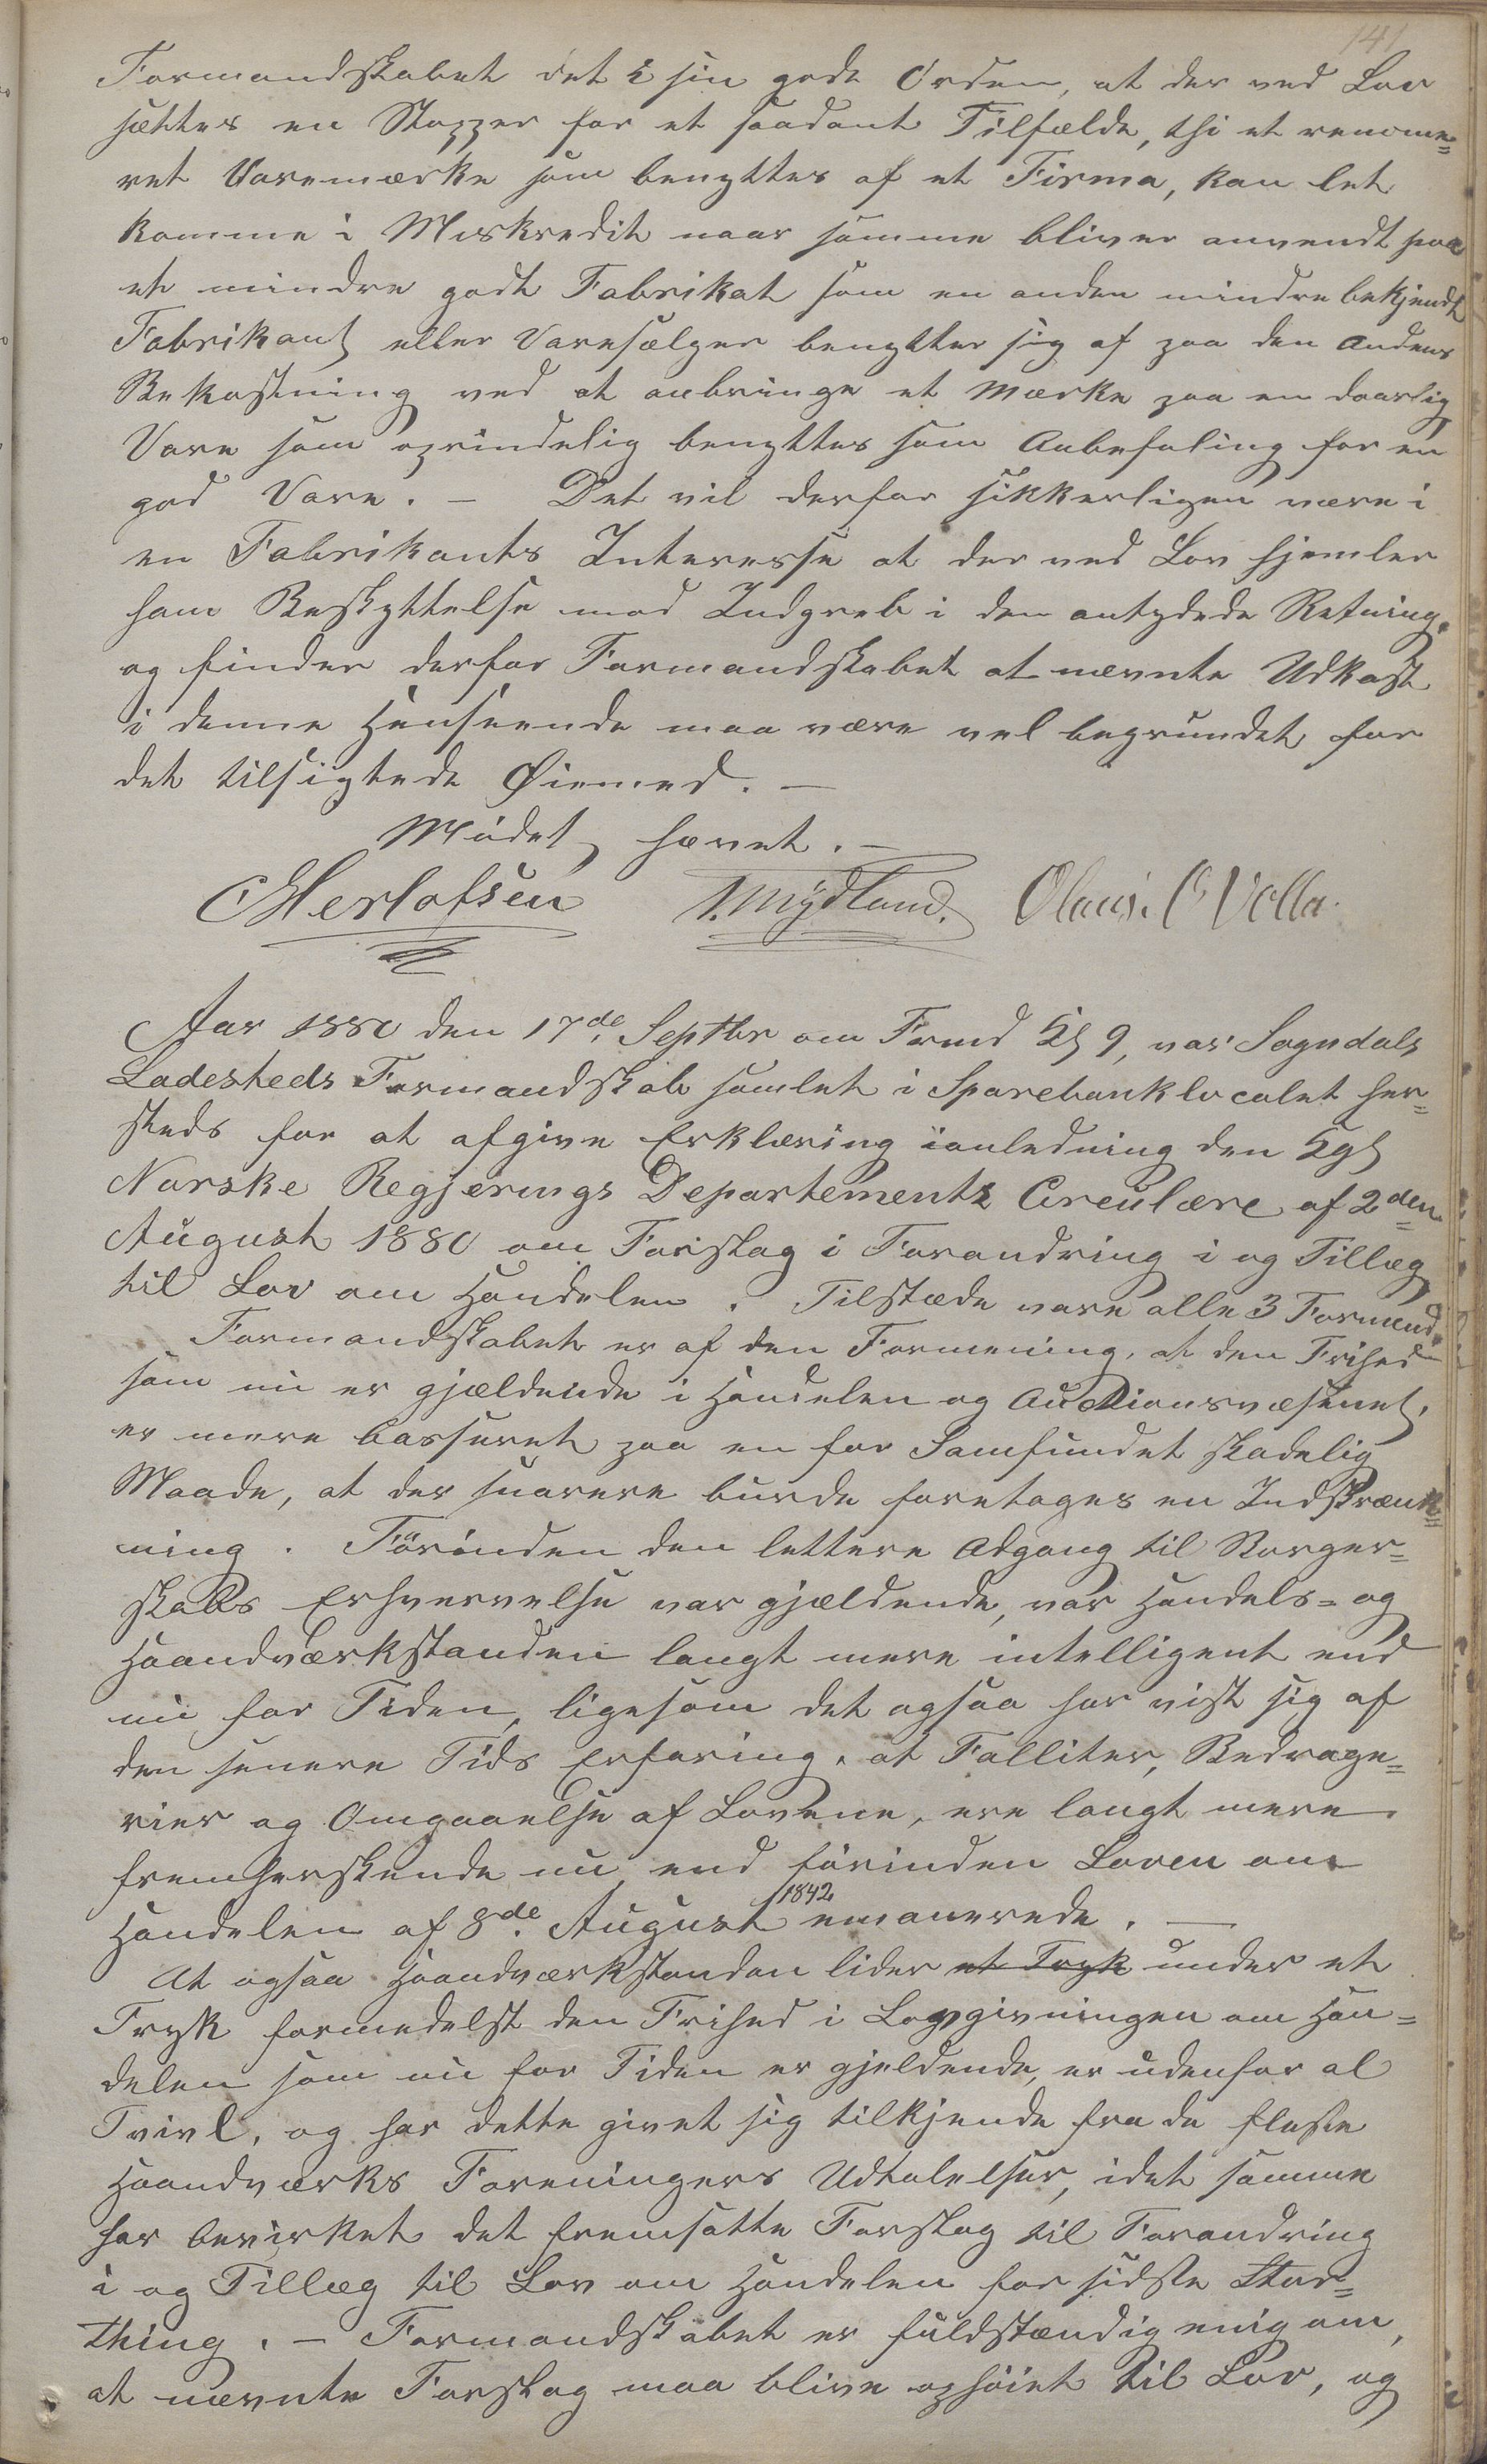 141
Formandskabet det i sin gode Orden, at der ved Lov
sættes en Stopper for et saadant Tilfælde, thi et renome=
ret Varemærke som benyttes af et Firma, kan let
komme i Miskredit naar samme bliver anvendt paa
et mindre godt Fabrikat som en anden mindre bekjendt
Fabrikant eller Varesælger benytter sig af paa den Andens
Bekostning ved at anbringe et Mærke paa en daarlig
Vare som oprindelig benyttes som Anbefaling for en
god Vare. – Det vil derfor sikkerligen være i
en Fabrikants Interesse at der ved Lov hjemler
ham Beskyttelse mod Indgreb i den antydede Retning,
og finder derfor Formandskabet at nævnte Udkast
i denne Henseende maa være vel begrundet for
det tilsigtede Øiemed. –
Mødet hævet. –
CHerlofsen T. Mydland. Olaus. C Volla.
Aar 1880 den 17de Septbr om Frmd Kl 9, var Sogndals
Ladesteds Formandskab samlet i Sparebanklocalet her=
steds for at afgive Erklæring ianledning den Kgl
Norske Regjerings Departements Circulære af 2den
August 1880 om Forslag i Forandring i og Tillæg
til Lov om Handelen. Tilstæde vare alle 3 Formænd.
Formandskabet er af den Formening, at den Frihed
som nu er gjældende i Handelen og Auctionsvæsenet,
er mere basseret paa en for Samfundet skadelig
Maade, at der snarere burde foretages en Indskrænk=
ning. Förinden den lettere Adgang til Borger=
skabs Erhvervelse var gjældende, var Handels= og
Haandværkstanden langt mere intelligent end
nu for Tiden, ligesom det ogsaa har vist sig af
den senere Tids Erfaring, at Falliter, Bedrage=
rier og Omgaaelse af Lovene, ere langt mere
fremherskende nu end förinden Loven om
Handelen af 8de August 1842 emanerede. –
At ogsaa Haandværkstanden lider et Tryk under et
Tryk formedelst den Frihed i Lovgivningen om Han=
delen som nu for Tiden er gjeldende, er udenfor al
Tvivl, og har dette givet sig tilkjende fra de fleste
Haandværks Foreningers Udtalelser, idet samme
har bevirket det fremsatte Forslag til Forandring
i og Tillæg til Lov om Handelen for sidste Stor=
thing. – Formandskabet er fuldstændig enig om,
at nævnte Forslag maa blive ophöiet til Lov, og